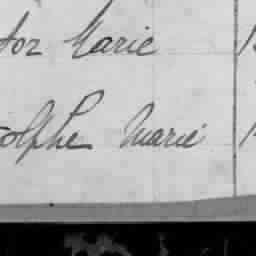 tor Marie
olphe Marie